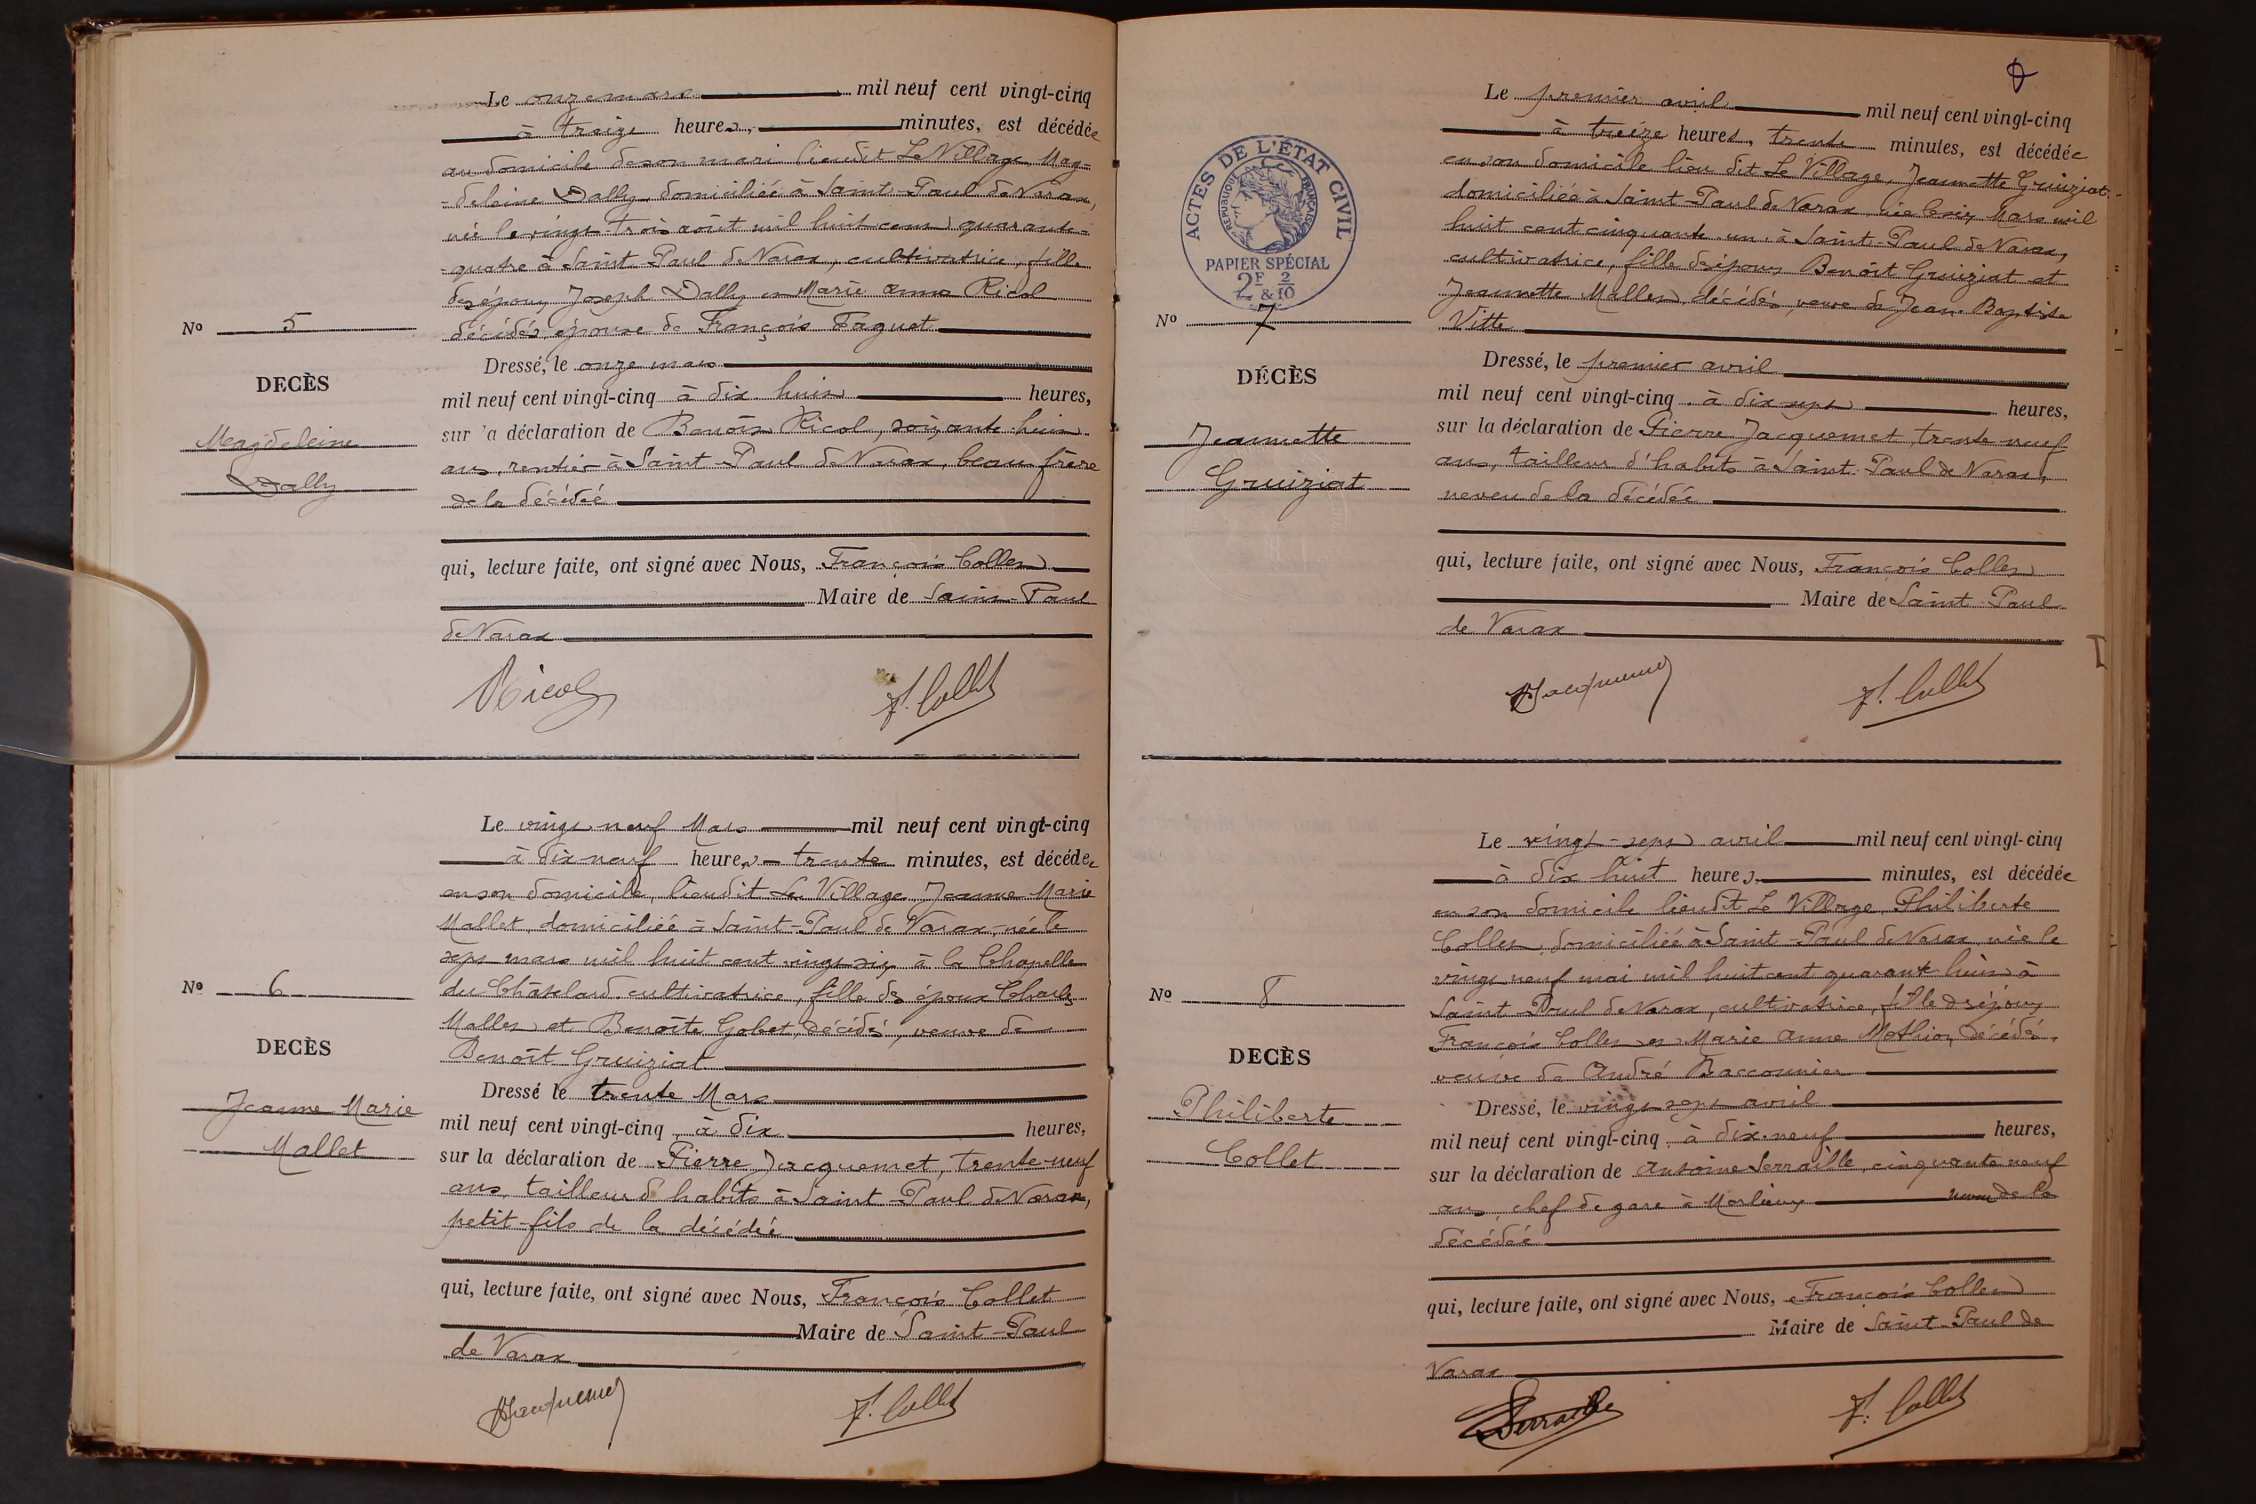 Le onze mars mil neuf cent vingt-cinq
à treize heures, minutes, est décédée
au domicile de son mari lieudit Le Village, Mag-
-deleine Dally, domiciliée à Saint-Paul de Varax,
née le vingt-trois août mil huit cent quarante-
-quatre à Saint-Paul de Varax, cultivatrice, fille
des époux Joseph Dally et Marie Anne Ricol
décédés, épouse de François Faguet
Dressé, le onze mars
mil neuf cent vingt-cinq à dix huit heures,
sur la déclaration de Benoît Ricol, soixante-huit
ans, rentier à Saint-Paul de Varax, beau frère
de la décédée
qui, lecture faite, ont signé avec Nous, François Collet
Maire de Saint-Paul
de Varax
Nº 5
DECÈS
Magdeleine
Dally
Ricol
F. Collet
Le vingt neuf Mars mil neuf cent vingt-cinq
à dix neuf heures trente minutes, est décédée
en son domicile, lieudit Le Village Jeanne Marie
Mallet, domiciliée à Saint-Paul de Varax, née le
sept mars mil huit cent vingt six à la Chapelle
du Châtelard, cultivatrice, fille des époux Charles
Mallet et Benoîte Gobet, décédés, veuve de
Benoît Gruiziat
Dressé le trente Mars
mil neuf cent vingt-cinq à dix heures,
sur la déclaration de Pierre Jacquemet, trente-neuf
ans, tailleur d'habits à Saint-Paul de Varax,
petit-fils de la décédée
qui, lecture faite, ont signé avec Nous, François Collet
Maire de Saint-Paul
de Varax
Nº 6
DECÈS
Jeanne Marie
Mallet
Jacquemet
F. Collet
Le premier avril mil neuf cent vingt-cinq
à treize heures, trente minutes, est décédée
en son domicile lieu dit Le Village, Jeannette Gruiziat
domiciliée à Saint-Paul de Varax, née le six Mars mil
huit cent cinquante-un, à Saint-Paul de Varax,
cultivatrice, fille des époux Benoît Gruiziat et
Jeannette Mallet, décédés, veuve de Jean-Baptiste
Vitte
Dressé, le premier avril
mil neuf cent vingt-cinq à dix sept heures,
sur la déclaration de Pierre Jacquemet, trente-neuf
ans, tailleur d'habits à Saint-Paul de Varax,
neveu de la décédée
qui, lecture faite, ont signé avec Nous, François Collet
Maire de Saint-Paul
de Varax
ACTES DE L'ÉTAT CIVIL
RÉPUBLIQUE FRANÇAISE
PAPIER SPÉCIAL
2F & 2/10
Nº 7
DÉCÈS
Jeannette
Gruiziat
Jacquemet
F. Collet
Le vingt-sept avril mil neuf cent vingt-cinq
à dix huit heures, minutes, est décédée
en son domicile lieudit Le Village, Philiberte
Collet, domiciliée à Saint-Paul de Varax, née le
vingt neuf mai mil huit cent quarante huit à
Saint-Paul de Varax, cultivatrice, fille des époux
François Collet et Marie Anne décédés,
veuve de André
Dressé, le vingt sept avril
mil neuf cent vingt-cinq à dix-neuf heures,
sur la déclaration de Antoine Serraille, cinquante neuf
ans, chef de gare à Marlieux neveu de la
décédée
qui, lecture faite, ont signé avec Nous, François Collet
Maire de Saint-Paul de
Varax
Nº 8
DECÈS
Philiberte
Collet
Serraille
F. Collet